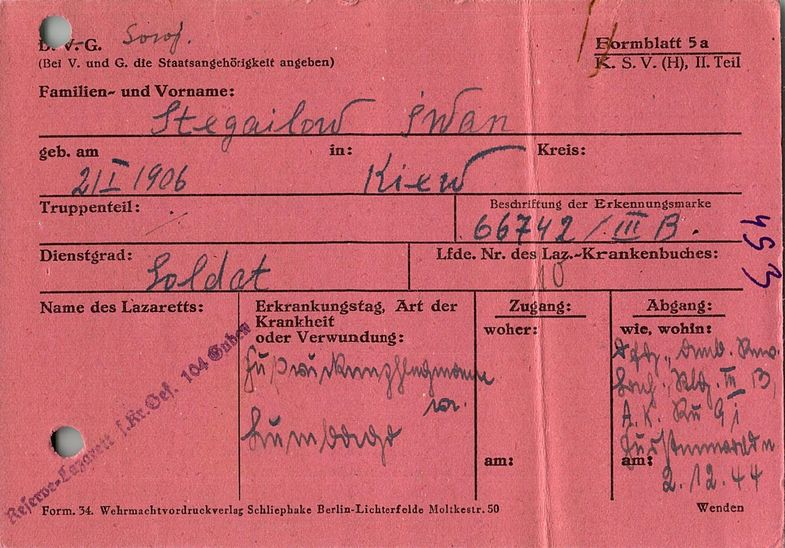 D. V. G. Sowj.
Formblatt 5a
(Bei V. und G. die Staatsangehörigkeit angeben)
K. S. V. (H), II. Teil
Familien- und Vorname:
Stegailow Iwan
geb. am in: Kreis:
2/I 1906 Kiew
Truppenteil: ./.
Beschriftung der Erkennungsmarke
66742 / III B.
Dienstgrad: Soldat
Lfde. Nr. des Laz.-Krankenbuches:
453
Name des Lazaretts:
Reserve-Lazarett f. Kr. Gef. 104 Guben
Erkrankungstag, Art der
Krankheit
oder Verwundung:
Lumbago
Zugang:
woher:
am:
Abgang:
wie, wohin:
III B,
A. K.
am:
2.12.44
Form. 34. Wehrmachtvordruckverlag Schliephake Berlin-Lichterfelde Moltkestr. 50
Wenden